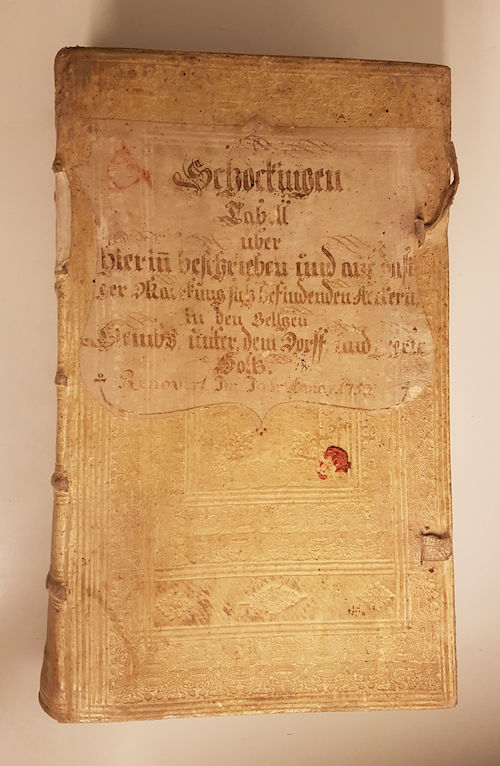 Schöckingen
Tab: II
über
hierin̄ beschrieben und auf das:
ger Marckung sich befindenden Äckern,
in den Zellgen
unter, dem Dorff, und
Holtz.
Renovirt Im Jahr Anno, 175